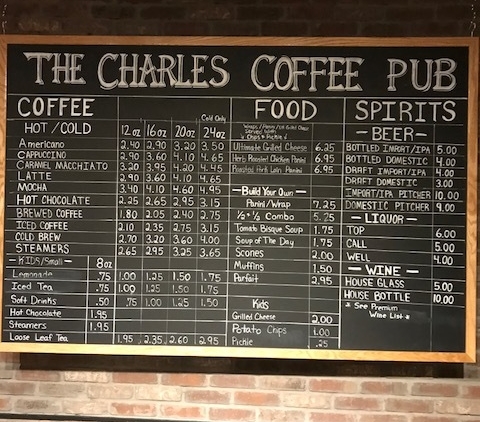 THE CHARLES COFFEE PUB
COFFEE
HOT / COLD
Cold Only
12oz 16oz 20oz 24oz
Americano 2.40 2.90 3.20 3.50
CAPPUCCINO 2.90 3.60 4.10 4.65
CARAMEL MACCHIATO 3.20 3.95 4.20 4.45
LATTE 2.90 3.60 4.10 4.65
MOCHA 3.40 4.10 4.60 4.95
HOT CHOCOLATE 2.25 2.65 2.95 3.15
BREWED COFFEE 1.80 2.05 2.40 2.75
ICED COFFEE 2.10 2.35 2.75 3.15
COLD BREW 2.70 3.20 3.60 4.00
STEAMERS 2.65 2.95 3.25 3.65
- KIDS/Small - 8oz
Lemonade .75 1.00 1.25 1.50 1.75
Iced Tea .75 1.00 1.25 1.50 1.75
Soft Drinks .50 .75 1.00 1.25 1.50
Hot Chocolate 1.95
Steamers 1.95
Loose Leaf Tea 1.95 2.35 2.60 2.95
FOOD
Served with
Chips & Pickle
Ultimate Grilled Cheese 6.25
Herb Roasted Chicken Panini 6.95
Roasted Pork Loin Panini 6.95
- Build Your Own -
Panini/Wrap 7.25
½ + ½ Combo 5.25
Tomato Bisque Soup 1.75
Soup of The Day 1.75
Scones 2.00
Muffins 1.50
Parfait 2.95
Kids
Grilled Cheese 2.00
Potato Chips 1.00
Pickle .25
SPIRITS
- BEER -
BOTTLED IMPORT/IPA 5.00
BOTTLED DOMESTIC 4.00
DRAFT IMPORT/IPA 4.00
DRAFT DOMESTIC 3.00
IMPORT/IPA PITCHER 10.00
DOMESTIC PITCHER 9.00
- LIQUOR -
TOP 6.00
CALL 5.00
WELL 4.00
- WINE -
HOUSE GLASS 5.00
HOUSE BOTTLE 10.00
* See Premium
Wine List *